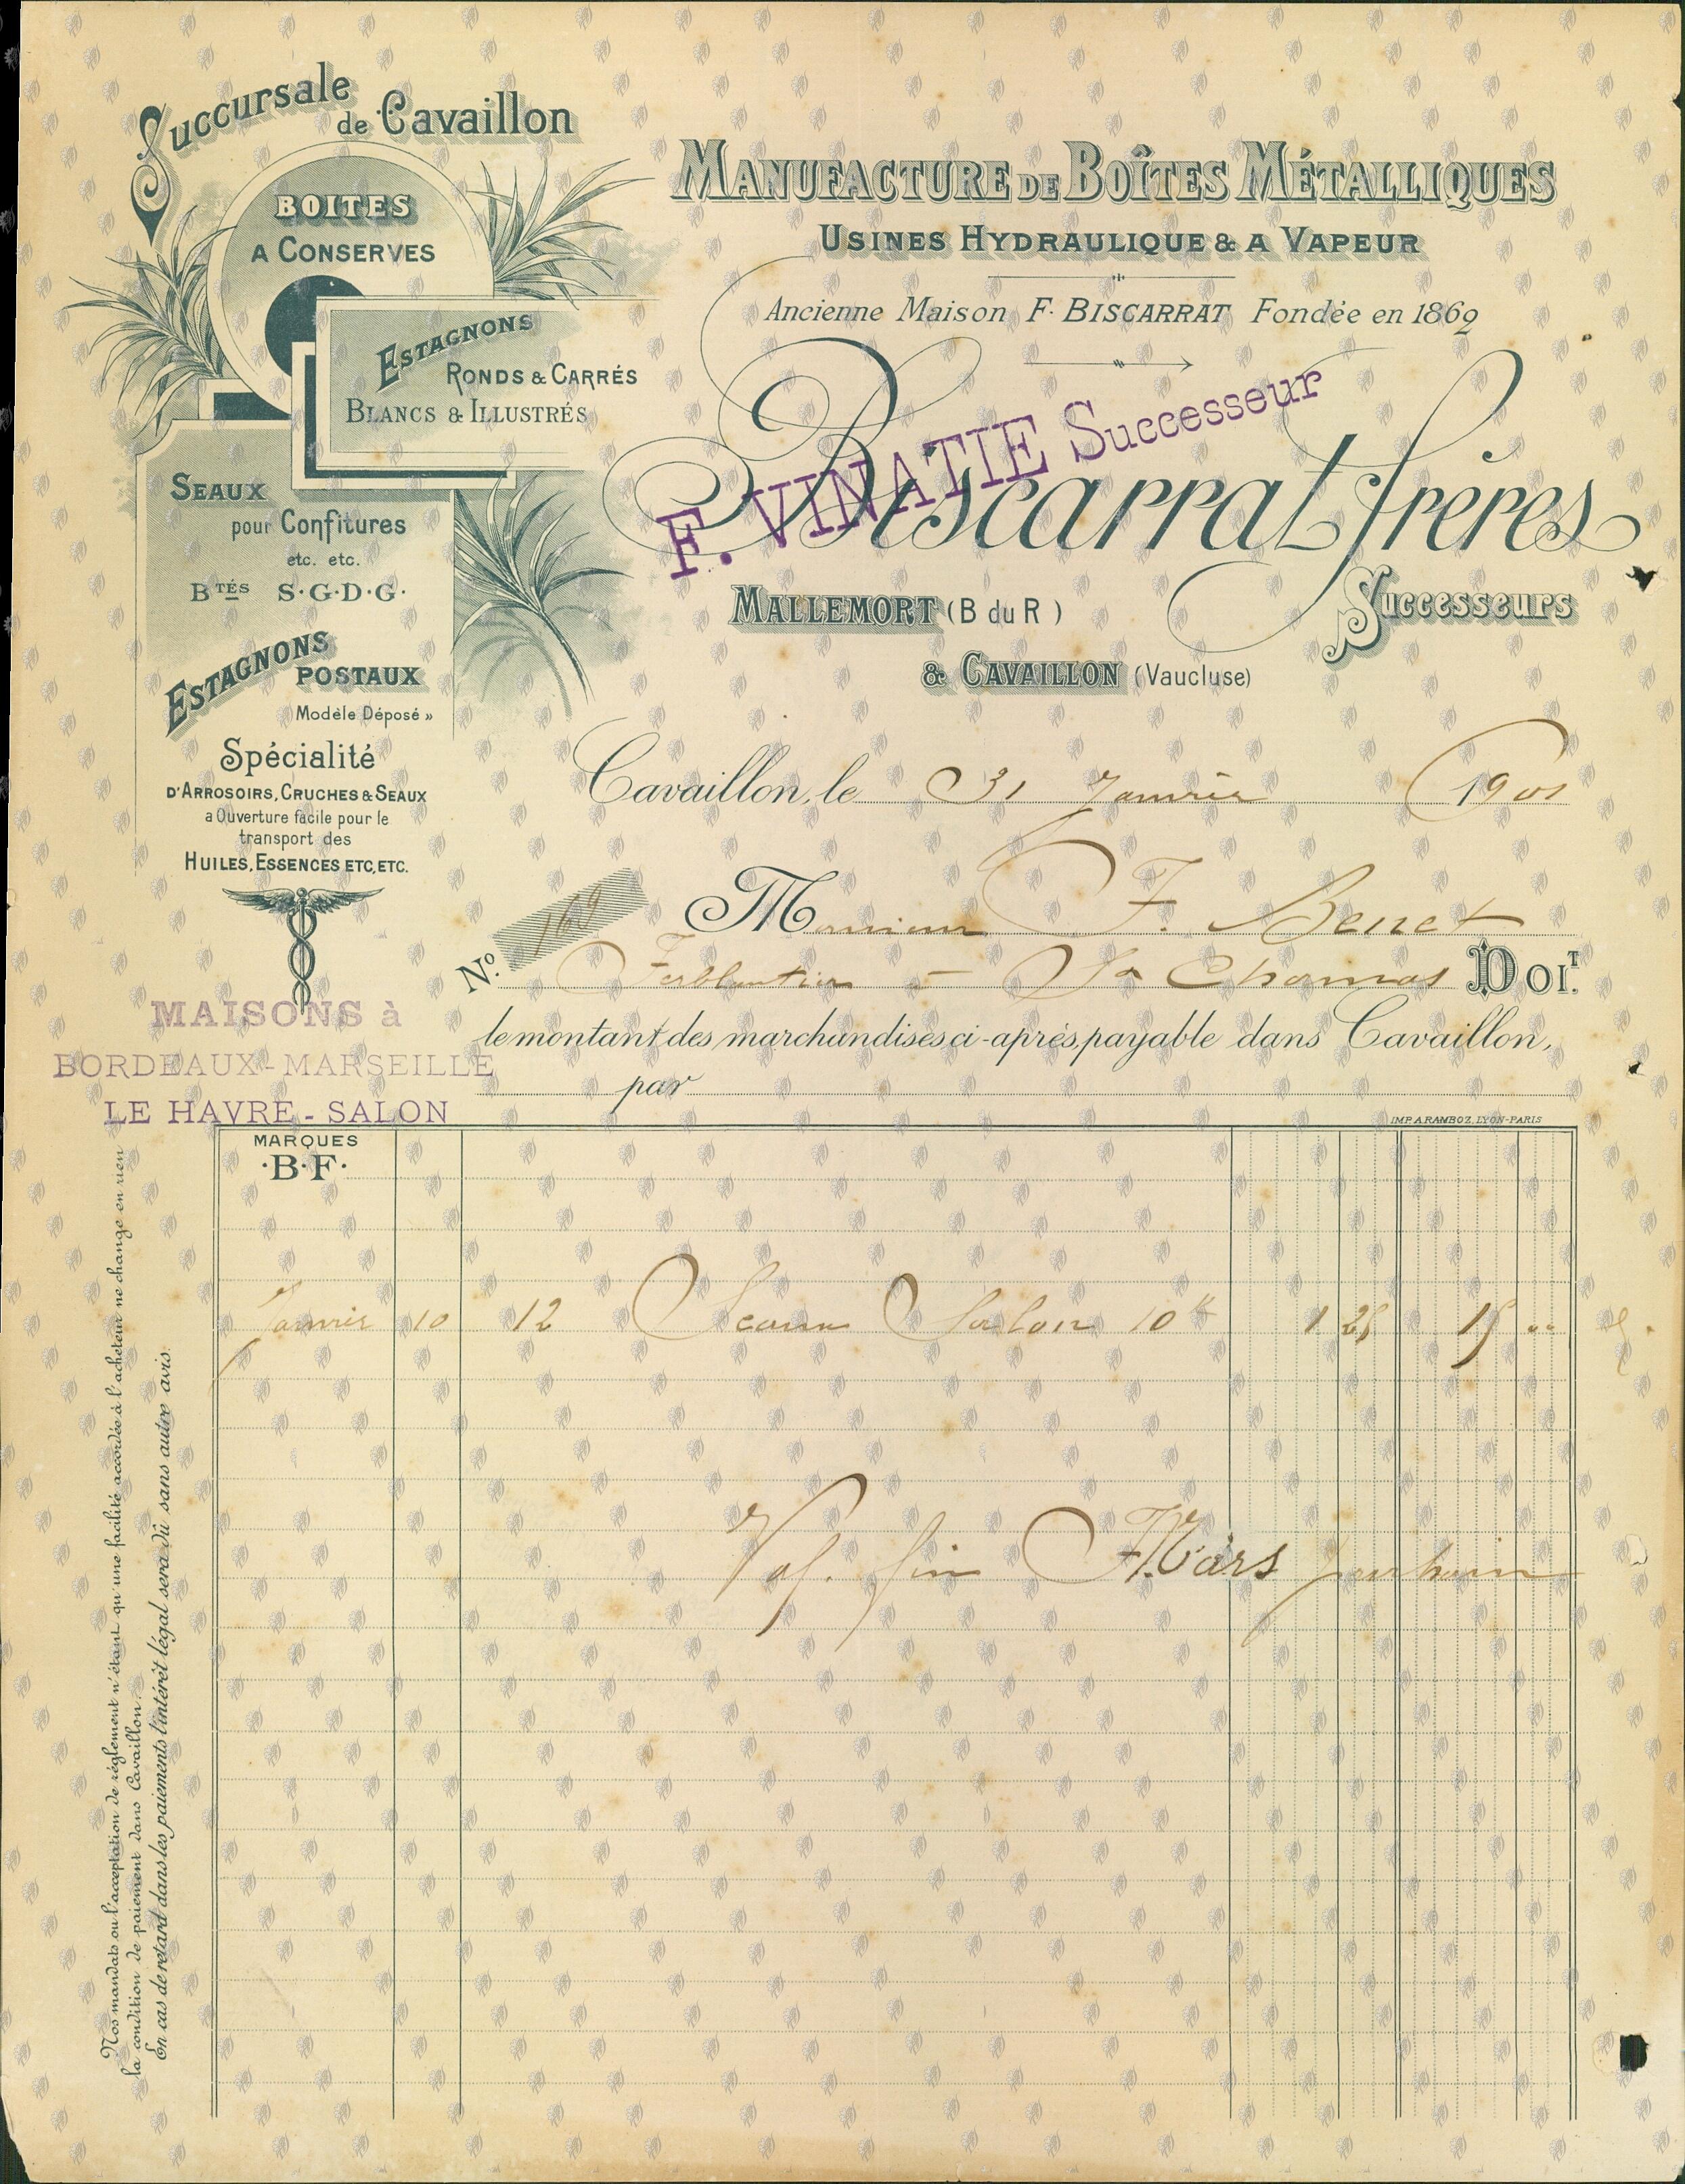 Succursale
de Cavaillon
BOITES
A CONSERVES
ESTAGNONS
RONDS & CARRÉS
BLANCS & ILLUSTRÉS
SEAUX
pour Confitures
etc. etc.
BTÉS S.G.D.G.
ESTAGNONS
POSTAUX
Modèle Déposé »
Spécialité
D'ARROSOIRS, CRUCHES & SEAUX
a Ouverture facile pour le
transport des
HUILES, ESSENCES ETC, ETC.
MAISONS à
BORDEAUX-MARSEILLE
LE HAVRE - SALON
MANUFACTURE DE BOÎTES MÉTALLIQUES
USINES HYDRAULIQUE & A VAPEUR
Ancienne Maison F. BISCARRAT Fondée en 1869
Biscarrat frères
F. VINATIE Successeur
MALLEMORT (B du R )
Successeurs
& CAVAILLON (Vaucluse)
Cavaillon, le 31 Janvier 1901
No. 162 Monsieur F. Benet
Ferblantier - St Chamas DOIT.
le montant des marchandises ci-après, payable dans Cavaillon,
par
IMP. A. RAMBOZ, LYON-PARIS
MARQUES
.B.F.
Janvier 10 12 Seaux Salon 10k 1 25 15 ""
Val. fin Mars prochain
Nos mandats ou l'acceptation de règlement n'étant qu'une facilité accordée à l'acheteur ne change en rien
la condition de paiement dans Cavaillon.
En cas de retard dans les paiements l'intérêt légal sera dû sans autre avis.